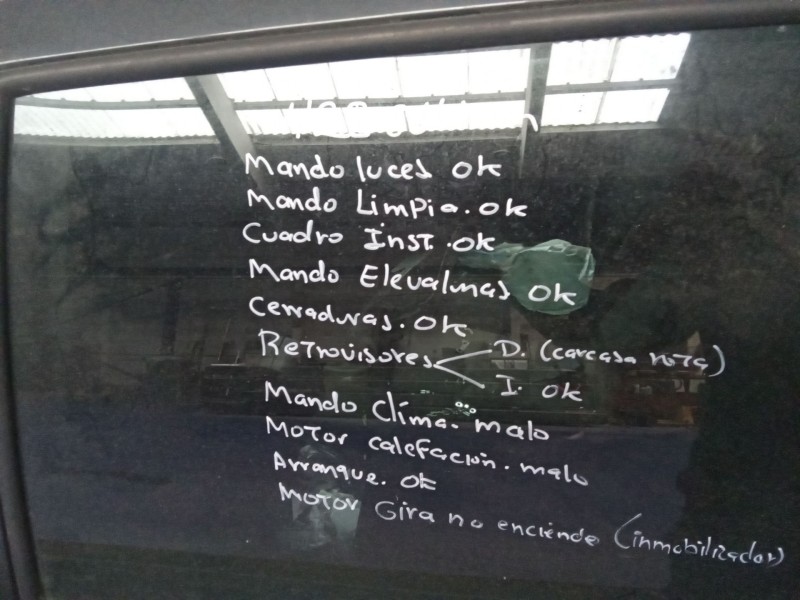 Mando luces ok
Mando Limpia. ok
Cuadro Inst. ok
Mando Elevalunas ok
Cerraduras. ok
Retrovisores D. (carcasa rota)
I. ok
Mando Clíma. malo
Motor calefacion. malo
Arranque. ok
Motor Gira no enciende (inmobilizador)